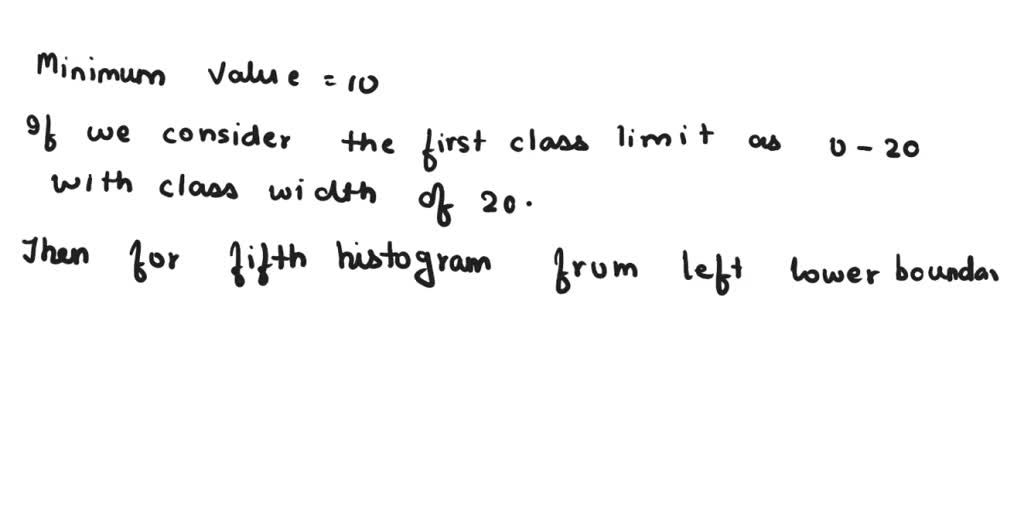 Minimum Value = 10
If we consider the first class limit as 0 - 20
with class width of 20.
Then for fifth histogram from left lower boundar